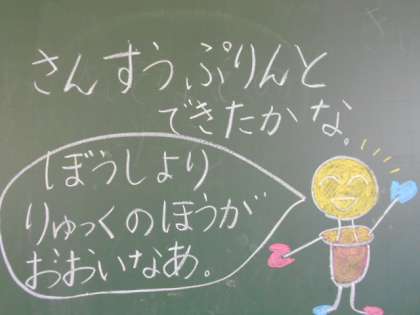 さんすうぷりんと
できたかな。
ぼうしより
りゅっくのほうが
おおいなあ。